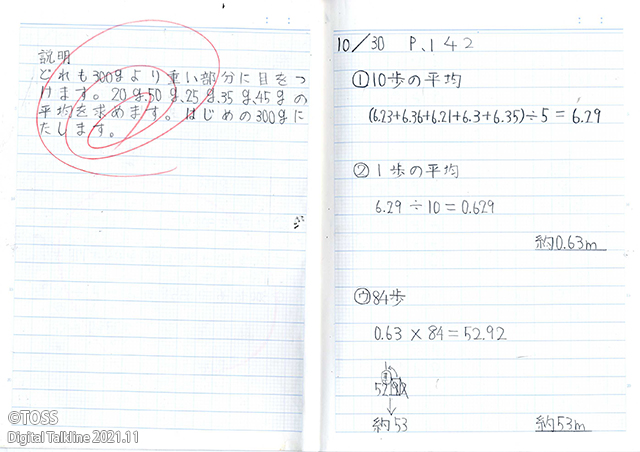 説明
どれも300gより重い部分に目をつ
けます。20g.50g.25g.35g.45gの
平均を求めます。はじめの300gに
たします。
10/30 P.142
①10歩の平均
(6.23+6.36+6.21+6.3+6.35)÷5=6.29
②1歩の平均
6.29÷10=0.629
約0.63m
㋒84歩
0.63×84=52.92
約53
約53m
©TOSS
Digital Talkline 2021.11